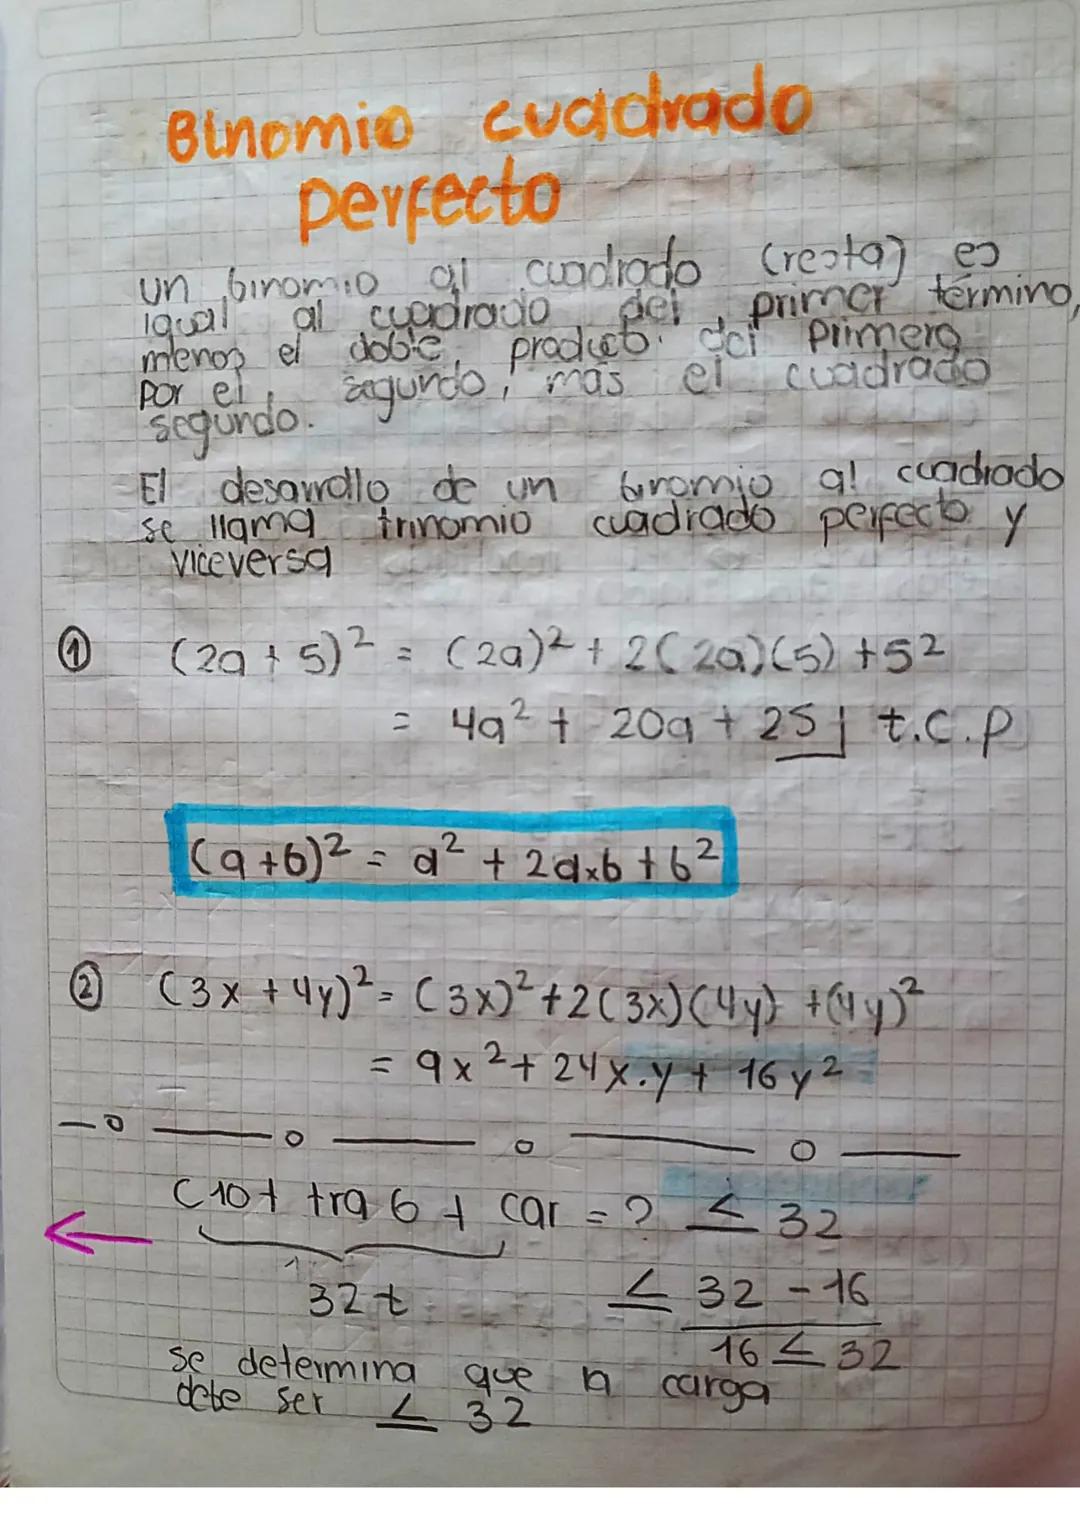 Binomio cuadrado
perfecto
un binomio al cuadrado (resta) es
igual al cuadrado del primer término,
menos el doble, producto. del primero
por el, segundo, más el cuadrado
segundo.
El desarrollo de un binomio al cuadrado
se llama trinomio cuadrado perfecto y
viceversa
① (2a + 5)² = (2a)² + 2(2a)(5) + 5²
= 4a² + 20a + 25 t.c.p
(a+b)² = a² + 2axb + b²
② (3x + 4y)² = (3x)² + 2(3x)(4y) + (4y)²
= 9x² + 24x.y + 16y²
(10 + tra 6 + car = ? ≤ 32
32 t ≤ 32 - 16
16 ≤ 32
se determina que la carga
debe ser ≤ 32